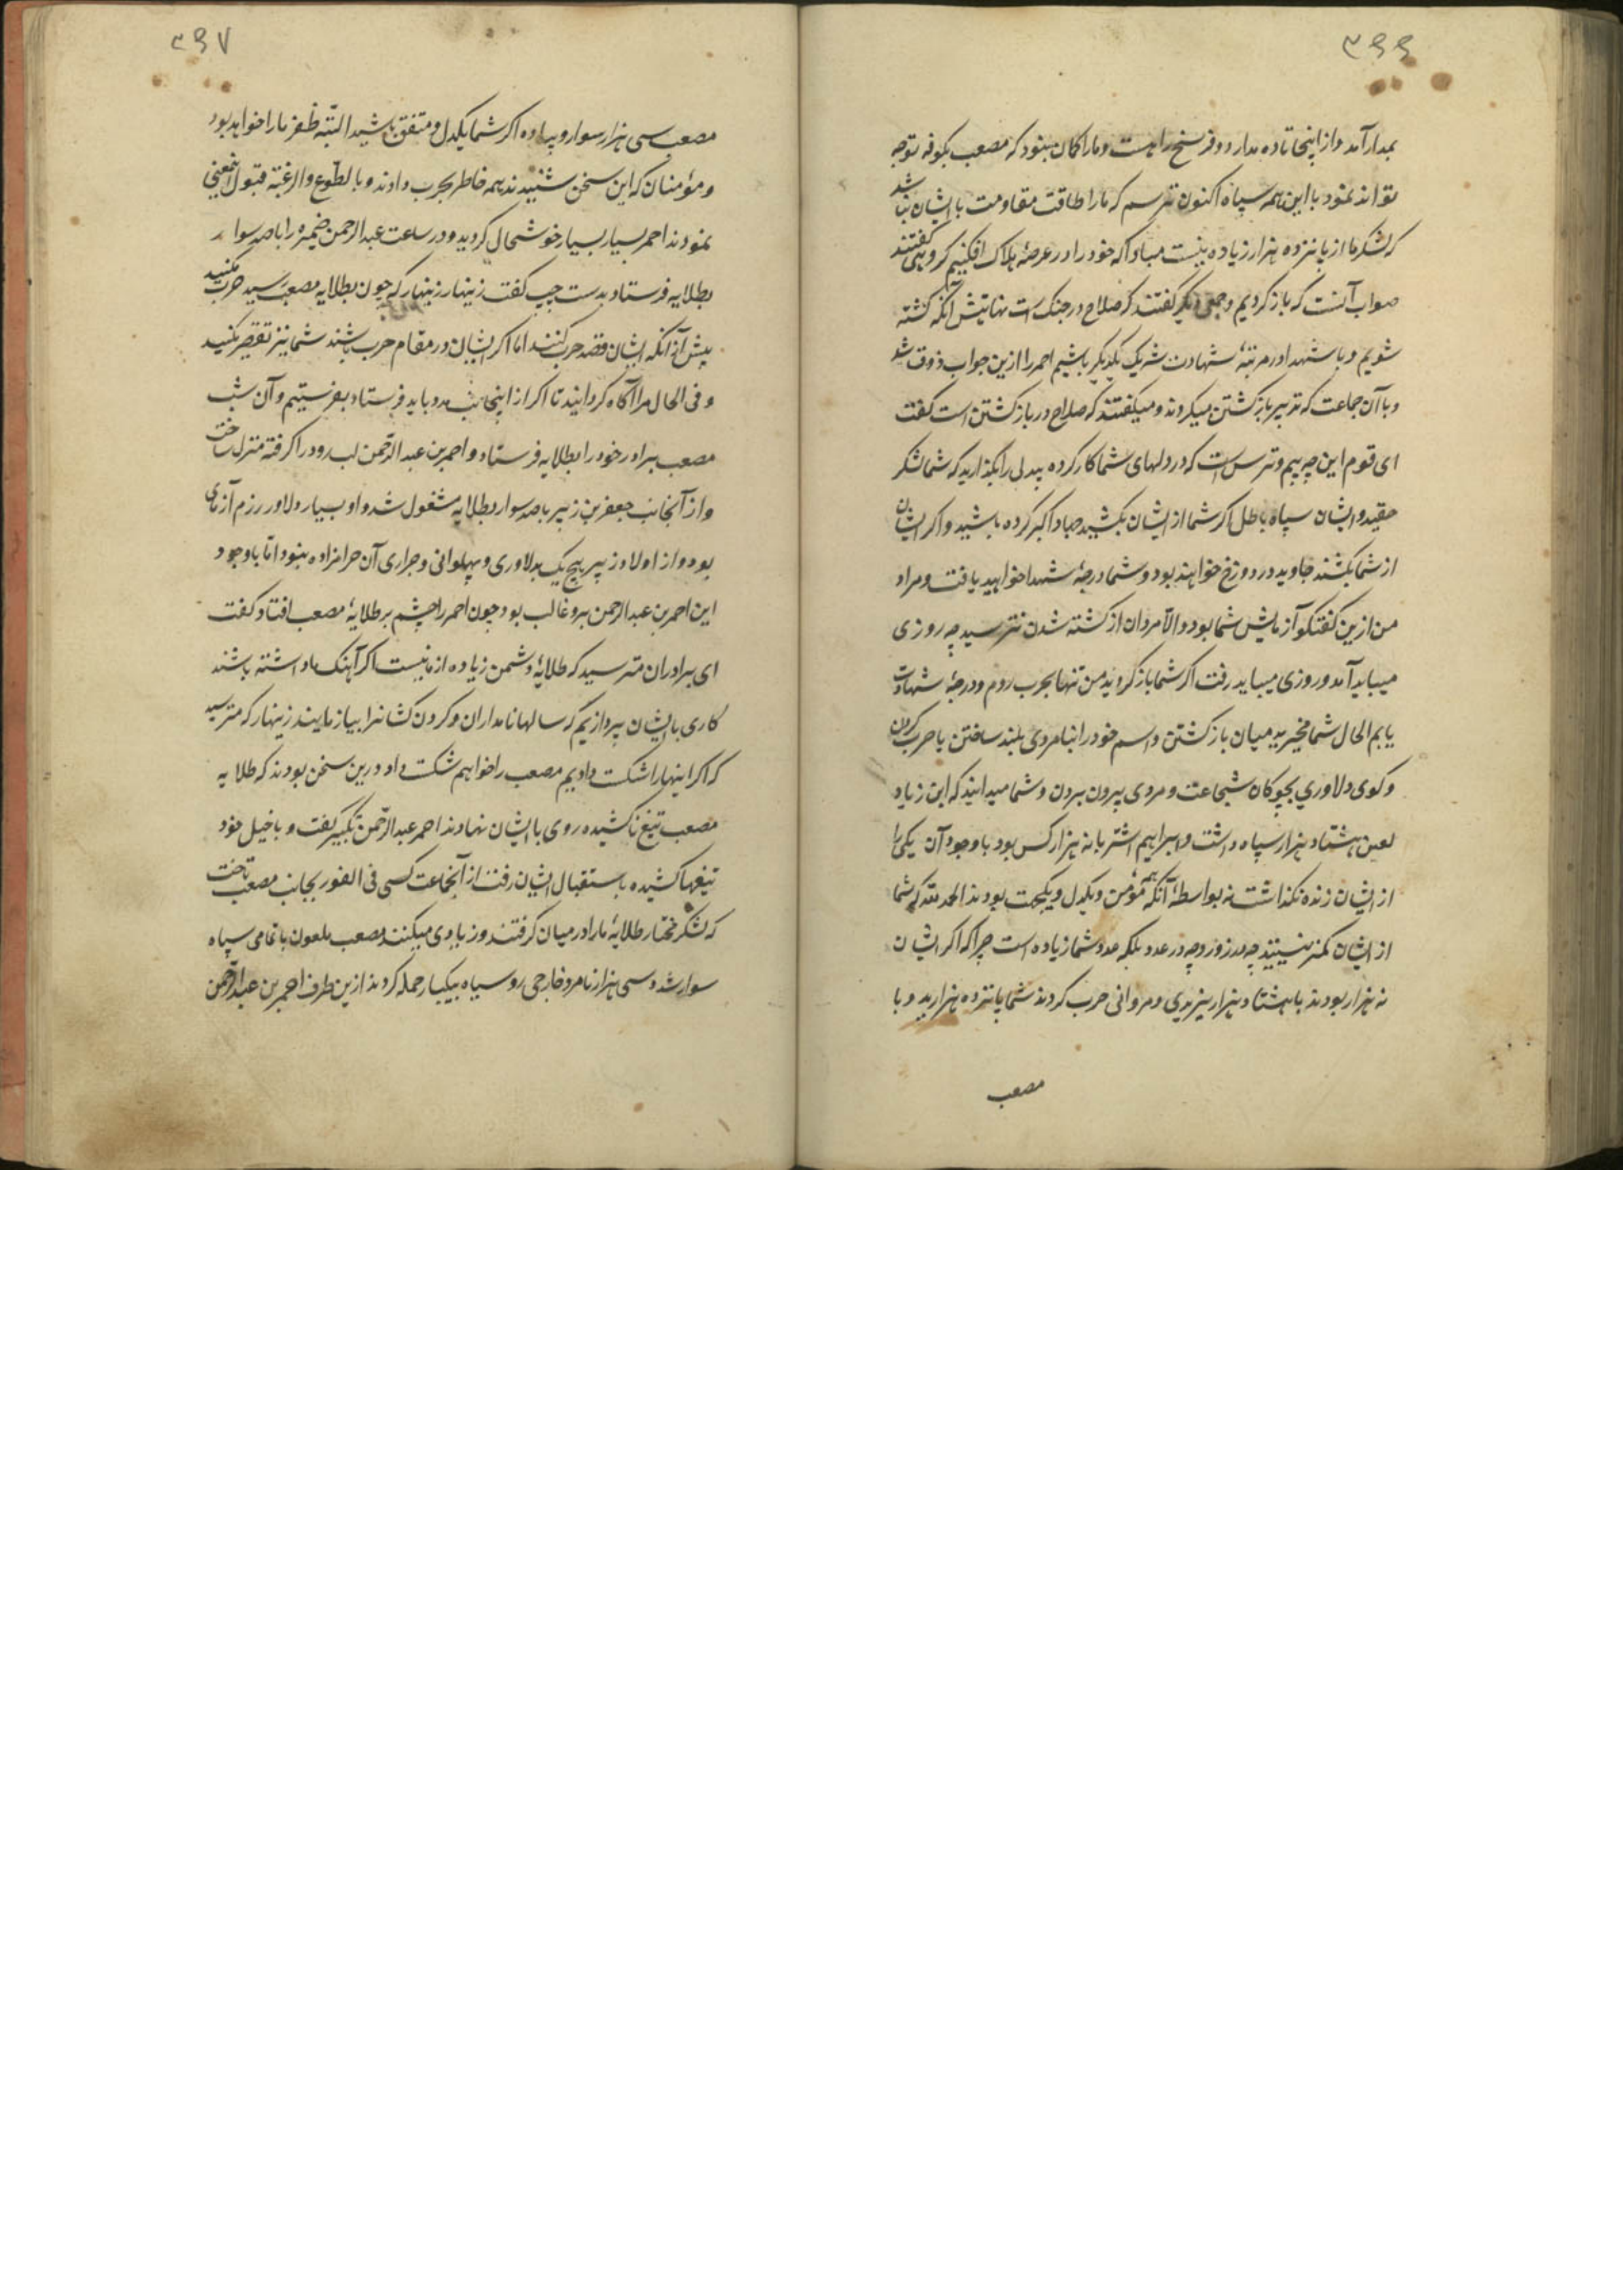 ۳۹۶
بمدار آمد و از اینجا تا ده مدار دو فرسخ راهست و ما را کمان نبود که مصعب بکوفه توجه
تواند نمود با این همه سپاه اکنون میترسم که ما را طاقت مقاومت با ایشان نباشد
که لشکر ما از پانزده هزار زیاده نیست مبادا که خود را در عرصهٔ هلاک افکنیم کروهی گفتند
صواب آنست که باز کردیم و جمعی دیگر گفتند که صلاح در جنک است نهایتش آنکه کشته
شویم و با شهدا در مرتبهٔ شهادت شریک یکدیگر باشیم احمر را ازین جواب ذوق شد
و با آن جماعت که تدبیر باز کشتن میکردند و میکفتند که صلاح در باز کشتن است کفت
ای قوم این چه بیم و ترس است که در دلهای شما کار کرده بیدلی را بگذارید که شما لشکر
حقید و ایشان سپاه باطل اکر شما از ایشان بکشید جهاد اکبر کرده باشید و اکر ایشان
از شما بکشند جاوید در دوزخ خواهند بود و شما درجهٔ شهدا خواهید یافت و مراد
من ازین کفتکو آزمایش شما بود و الا مردان از کشته شدن نترسید چه روزی
میباید آمد و روزی میباید رفت اکر شما باز کردید من تنها بحرب روم و درجهٔ شهادت
یابم الحال شما مخیرید میان باز کشتن و اسم خود را بنامردی بلند ساختن یا حرب کردن
و کوی دلاوری بچوکان شجاعت و مردی بیرون بردن و شما میدانید که ابن زیاد
لعین هشتاد هزار سپاه داشت و ابراهیم اشتر با نه هزار کس بود با وجود آن یکی را
از ایشان زنده نکذاشتند بواسطهٔ آنکه همه مؤمن و یکدل و یکجهت بودند الحمد لله که شما
از ایشان کمتر نیستید چه در زور و چه در عدد بلکه عدد شما زیاده است چرا که اکر ایشان
نه هزار بودند با هشتاد هزار یزیدی و مروانی حرب کردند شما پانزده هزارید و با
مصعب
۳۹۷
مصعب سی هزار سوار و پیاده اکر شما یکدل و متفق باشید البته ظفر ما را خواهد بود
و مؤمنان که این سخن شنیدند همه خاطر بحرب دادند و بالطوع والرغبة قبول اینمعنی
نمودند احمر بسیار بسیار خوشحال کردید و در ساعت عبدالرحمن ضمیره را با صد سوار
بطلایه فرستاد بدست چپ کفت زینهار زینهار که چون بطلایه مصعب رسید حرب مکنید
پیش از آنکه ایشان قصد حرب کنند اما اکر ایشان در مقام حرب باشند شما نیز تقصیر مکنید
و فی الحال مرا آکاه کردانید تا اکر از اینجانب مدد باید فرستاد بفرستیم و آن شب
مصعب برادر خود را بطلایه فرستاد و احمر بن عبدالرحمن لب رود را کرفته منزل ساخت
و از آنجانب جعفر بن زبیر با صد سوار بطلایه مشغول شد و او بسیار دلاور و رزم آزمای
بود و از اولاد زبیر هیچ یک بدلاوری و پهلوانی و جراری آن حرامزاده نبود اما با وجود
این احمر بن عبدالرحمن برو غالب بود چون احمر را چشم بر طلایهٔ مصعب افتاد کفت
ای برادران مترسید که طلایهٔ دشمن زیاده از ما نیست اکر آهنک ما داشته باشند
کاری با ایشان پردازیم که سالها نامداران و کردن کشان را بیاز مایند زینهار که مترسید
که اکر اینها را شکست دادیم مصعب را خواهیم شکست داد درین سخن بودند که طلایه
مصعب تیغ ها کشیده روی با ایشان نهادند احمر عبدالرحمن تکبیر کفت و با خیل خود
تیغها کشیده باستقبال ایشان رفت از آنجماعت کسی فی الفور بجانب مصعب تاخت
که لشکر مختار طلایهٔ ما را در میان کرفتند و زیادی میکنند مصعب ملعون با تمامی سپاه
سوار شد و سی هزار نامرد خارجی رو سیاه بیکبار حمله کردند ازین طرف احمر بن عبدالرحمن